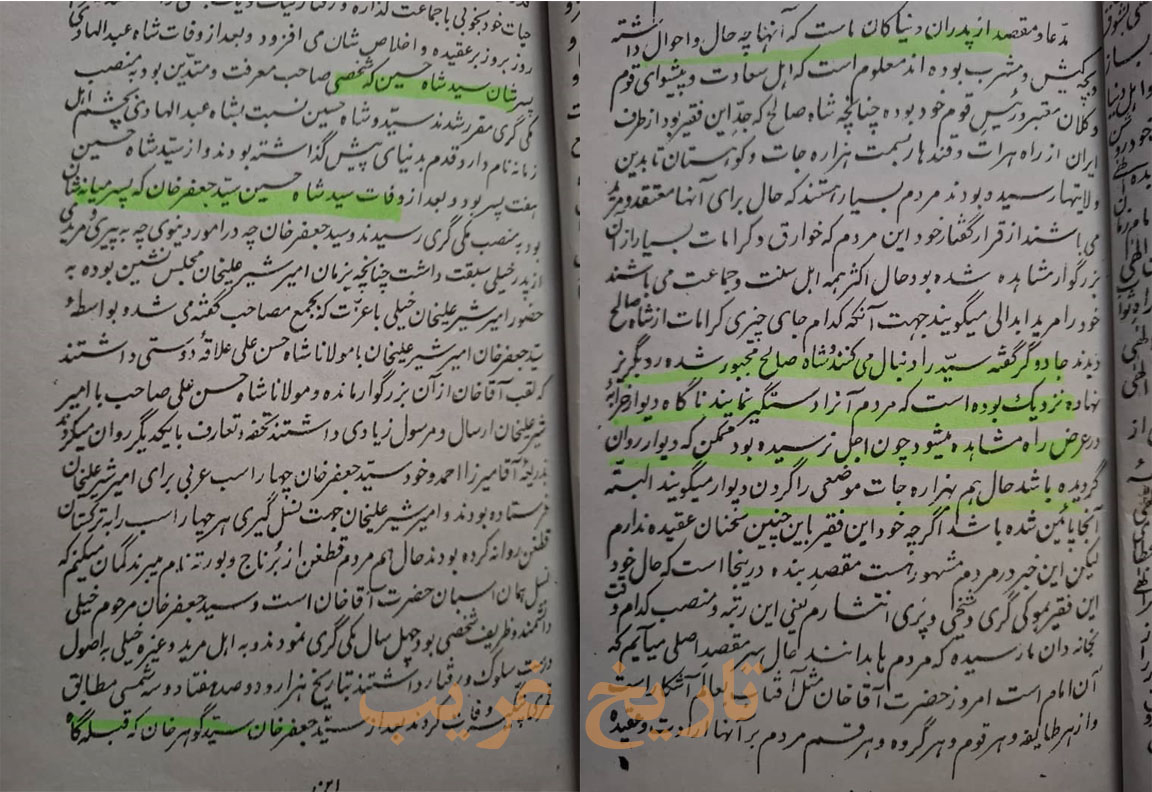 مدّعا و مقصد از پدران دنیاکان ماست که آنها چه حال و احوال داشته
و بچه کیش و مشرب بوده اند معلوم است که اهل سعادت و پیشوای قوم
و کلان معتبر و رئیس قوم خود بوده چنانچه شاه صالح که جدّ این فقیر بود از طرف
ایران از راه هرات و قندهار بسمت هزاره جات و کوهستان تا بدین
ولایتها رسیده بودند مردم بسیار هستند که حال برای آنها معتقد و مرید
می باشند از قرار گفتار خود این مردم که خوارق و کرامات بسیار از آن
بزرگوار مشاهده شده بود حال اکثر همه اهل سنت و جماعت می باشند
خود را مرید ابدالی میگویند جهت آنکه کدام جای چیزی کرامات از شاه صالح
دیدند جادوگر گفته سیّد را دنبال می کنند شاه صالح مجبور شده رد بگریز
نهاده نزدیک بوده است که مردم آنرا دستگیر نمایند ناگاه دیوار
در عرض راه مشاهده میشود چون اجل نرسیده بود ممکن که دیوار روان
گردیده باشد حال هم بهزاره جات موضعی را گردن دیوار میگویند البته
آنجا پائین شده باشد اگرچه خود این فقیر باین چنین سخنان عقیده ندارم
لیکن این خبر در مردم مشهور هست مقصد بنده در ینجا است که حال خود
این فقیر بموکی گری و شخی و پری انتشارم یعنی این رتبه و منصب کدام وقت
بخانه دان ما رسیده که مردم ما بدانند حال سر مقصد اصلی میآیم که
آن امام است امروز حضرت آقاخان مثل آفتاب بعالم آشکار است
و از هر طائیفه و هر قوم و هر گروه و هر قسم مردم بر آنها ارادت و عقیده
جات خود بخوبی با جماعت گذاره و رفتار
روز بروز بر عقیده و اخلاص شان می افزود و بعد از وفات شاه عبدالهاد
پسر شان سید شاه حسین که شخصی صاحب معرفت و متدّین بود به منصب
مکی گری مقرر شدند سیّد و شاه حسین نسبت بشاه عبدالهادی بچشم اهل
زمانه نام دار و قدم بدنیای پیش گذاشته بودند و از سیّد شاه حسین
هفت پسر بود و بعد از وفات سید شاه حسین سیّد جعفرخان که پسر میانه شان
بود به منصب مکی گری رسیدند و سید جعفرخان چه در امور دینوی چه به پیری و مریدی
از پدر خیلی سبقت داشت چنانچه بزمان امیر شیر علیخان مجلس نشین بوده به
حضور امیر شیر علیخان خیلی با عزّت که بجمع مصاحب گفته می شده بواسطهٔ
سیّد جعفرخان امیر شیر علیخان با مولانا شاه حسن علی علاقه دوستی داشتند
که لقب آقاخان از آن بزرگوار مانده و مولانا شاه حسن علی صاحب با امیر
شیر علیخان ارسال و مرسول زیادی داشتند تحفه و تعارف با یکدیگر روان میکردند
بذریعهٔ آقا میرزا احمد و خود سیّد جعفرخان چهار اسب عربی برای امیر شیر علیخان
فرستاده بودند و امیر شیر علیخان جهت نسل گیری هر چهار اسب را به ترکستان
قطغن روانه کرده بودند حال هم مردم قطغن از برناج و بورته نام میبرند گمان میکنم که
نسل همان اسبان حضرت آقاخان است و سید جعفرخان مرحوم خیلی
دانشمند و ظریف شخصی بود چهل سال مکی گری نمودند و به اهل مرید و غیره خیلی به اصول
درست سلوک و رفتار داشتند بتاریخ هزار و دو صد هفتاد و سه شمسی مطابق
وفات کردند بعد از سیّد جعفرخان سید گوهرخان که قبله گاه
این
تاریخ غریب